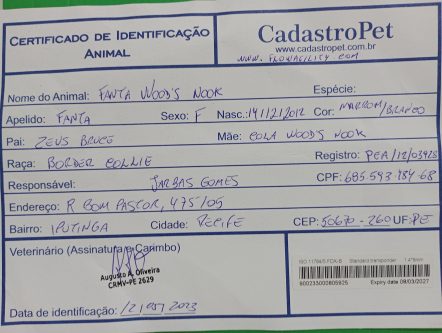 CERTIFICADO DE IDENTIFICAÇÃO
ANIMAL
CadastroPet
www.cadastropet.com.br
Nome do Animal: FANTA WOOD'S NOOK Espécie:
Apelido: FANTA Sexo: F Nasc.: 14/12/2012 Cor: MARROM/BRANCO
Pai: ZEUS BRUCE Mãe: COLA WOODS NOOK
Raça: BORDER COLLIE Registro: PEA/12/03428
Responsável: JARBAS GOMES CPF: 685.593.484-68
Endereço: R BOM PASTOR, 475/05
Bairro: IPUTINGA Cidade: RECIFE CEP: 50670-260 UF: PE
Veterinário (Assinatura e Carimbo)
Augusto A. Oliveira
CRMV-PE 2629
ISO 11784/5 FDX-B Standard transponder
Expiry date 09/03/2027
Data de identificação: